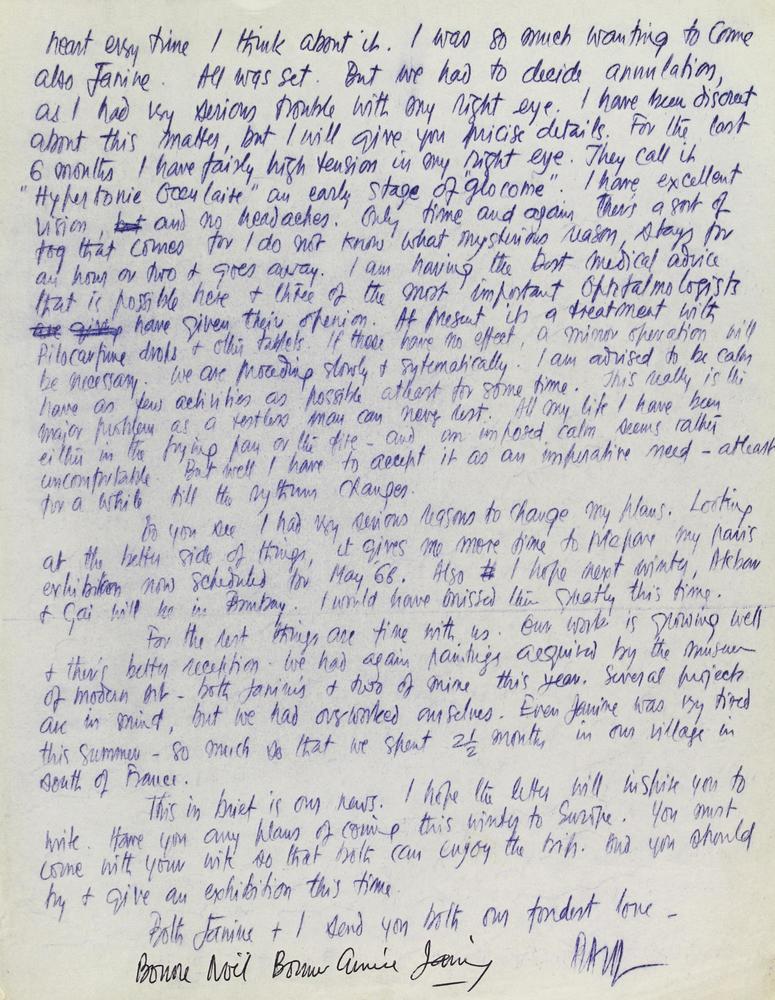 heart evry time I think about it. I was so much wanting to come
also Janine. All was set. But we had to decide annulation,
as I had vry serious trouble with my right eye. I have been discreet
about this matter, but I will give you precise details. For the last
6 months I have fairly high tension in my right eye. They call it
"Hypertonie Occulaire" an early stage of "glocome". I have excellent
vision, but and no headaches. Only time and again there's a sort of
fog that comes for I do not know what mysterious reason, stays for
an hour or two & goes away. I am having the best medical advice
that is possible here & three of the most important Ophtalmologists
are giving have given their openion. At present it's a treatment with
Pilocarpine drops & other tablets. If these have no effect, a minor operation will
be necessary. We are proceeding slowly & systematically. I am advised to be calm
have as few activities as possible atleast for some time. This really is the
major problem as a restless man can never rest. All my life I have been
either in the frying pan or the fire – and an imposed calm seems rather
uncomfortable. But well I have to accept it as an imperative need – atleast
for a while till the rythum changes.
So you see I had vry serious reasons to change my plans. Looking
at the better side of things, it gives me more time to prepare my paris
exhibition now scheduled for May 68. Also I hope next winter, Akbar
& Gai will be in Bombay. I would have missed them greatly this time.
For the rest things are fine with us. Our work is growing well
& there's better reception. We had again paintings acquired by the museum
of modern Art – both Janine's & two of mine this year. Several projects
are in mind, but we had overworked ourselves. Even Janine was vry tired
this summer – so much so that we spent 2½ months in our village in
south of France.
This in brief is our news. I hope the letter will inspire you to
write. Have you any plans of coming this winter to Europe. You must
come with your wife so that both can enjoy the trip. And you should
try & give an exhibition this time.
Both Janine & I send you both our fondest love –
RAZA
Bonne Noël Bonne Année Janine